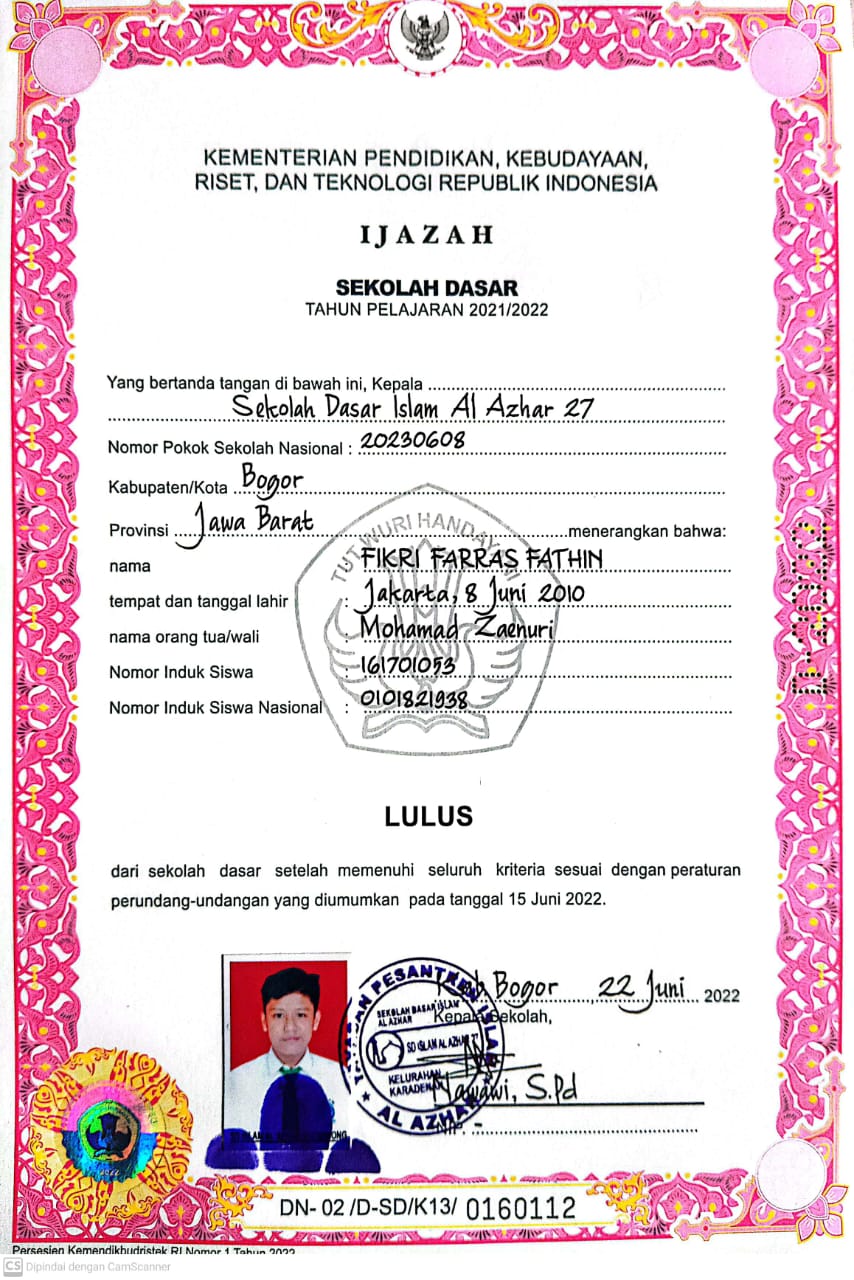 KEMENTERIAN PENDIDIKAN, KEBUDAYAAN,
RISET, DAN TEKNOLOGI REPUBLIK INDONESIA
IJAZAH
SEKOLAH DASAR
TAHUN PELAJARAN 2021/2022
Yang bertanda tangan di bawah ini, Kepala
Sekolah Dasar Islam Al Azhar 27
Nomor Pokok Sekolah Nasional : 20230608
Kabupaten/Kota Bogor
Provinsi Jawa Barat menerangkan bahwa:
TUT WURI HANDAYANI
nama : FIKRI FARRAS FATHIN
tempat dan tanggal lahir : Jakarta, 8 Juni 2010
nama orang tua/wali : Mohamad Zaenuri
Nomor Induk Siswa : 161701053
Nomor Induk Siswa Nasional : 0101821938
LULUS
dari sekolah dasar setelah memenuhi seluruh kriteria sesuai dengan peraturan
perundang-undangan yang diumumkan pada tanggal 15 Juni 2022.
Kab. Bogor, 22 Juni 2022
Kepala Sekolah,
PESANTREN ISLAM
SEKOLAH DASAR ISLAM
AL AZHAR
SD ISLAM AL AZHAR 27
KELURAHAN
KARADENAN
AL AZHAR
Nawawi, S.Pd
NIP. -
DN- 02 /D-SD/K13/ 0160112
Persesjen Kemendikbudristek RI Nomor 1 Tahun 2022
CS Dipindai dengan CamScanner